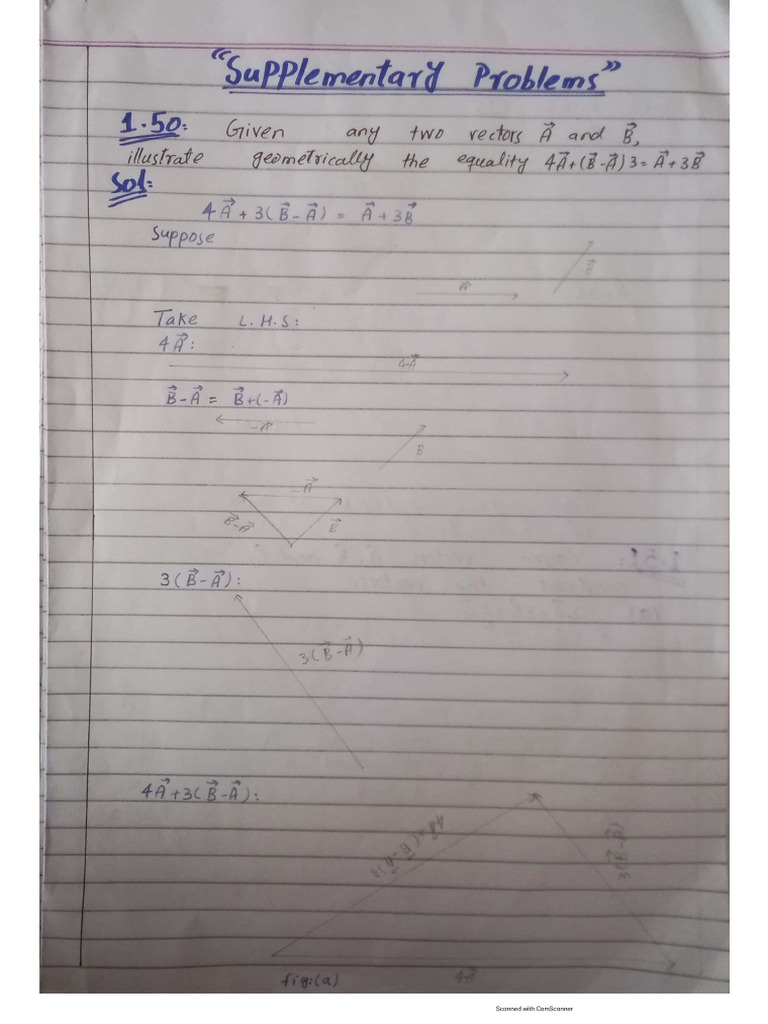 “Supplementary Problems”
1.50: Given any two vectors A⃗ and B⃗,
illustrate geometrically the equality 4A⃗+(B⃗-A⃗)3=A⃗+3B⃗
Sol:
4A⃗+3(B⃗-A⃗)=A⃗+3B⃗
Suppose
A⃗ B⃗
Take L.H.S:
4A⃗:
4A⃗
B⃗-A⃗ = B⃗+(-A⃗)
-A⃗
B
-A⃗
B⃗-A⃗ B⃗
3(B⃗-A⃗):
3(B⃗-A⃗)
4A⃗+3(B⃗-A⃗):
4A⃗+(B⃗-A⃗)3
3(B⃗-A⃗)
fig:(a) 4A⃗
Scanned with CamScanner